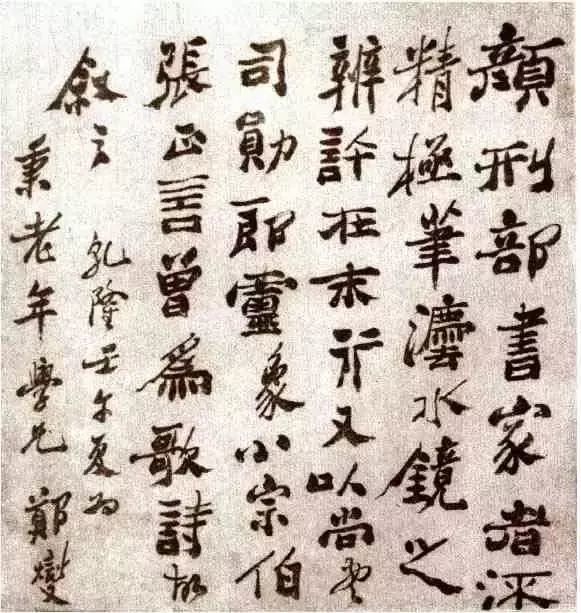 顏刑部書家者流
精極筆灋水鏡之
辨許在末行又以尚書
司勛郎盧象小宗伯
張正言曾爲歌詩故
敘之 乾隆壬午夏爲
秉老年學兄 鄭燮